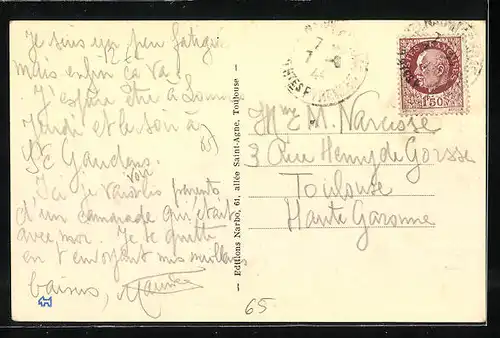 Je suis un peu fatigué
mais enfin ça va.
J'espère être à
Jeudi et le soir à
St Gaudens.
Ici je vais voir les parents
d'un camarade qui était
avec moi. Je te quitte
en t'envoyant mes meilleurs
baisers, Maurice
65
— Editions Narbo, 61, allée Saint-Agne, Toulouse —
POSTES FRANCE
1F50
Mme M. Narcisse
3 Rue Henry de Gorsse
Toulouse
Haute Garonne
65